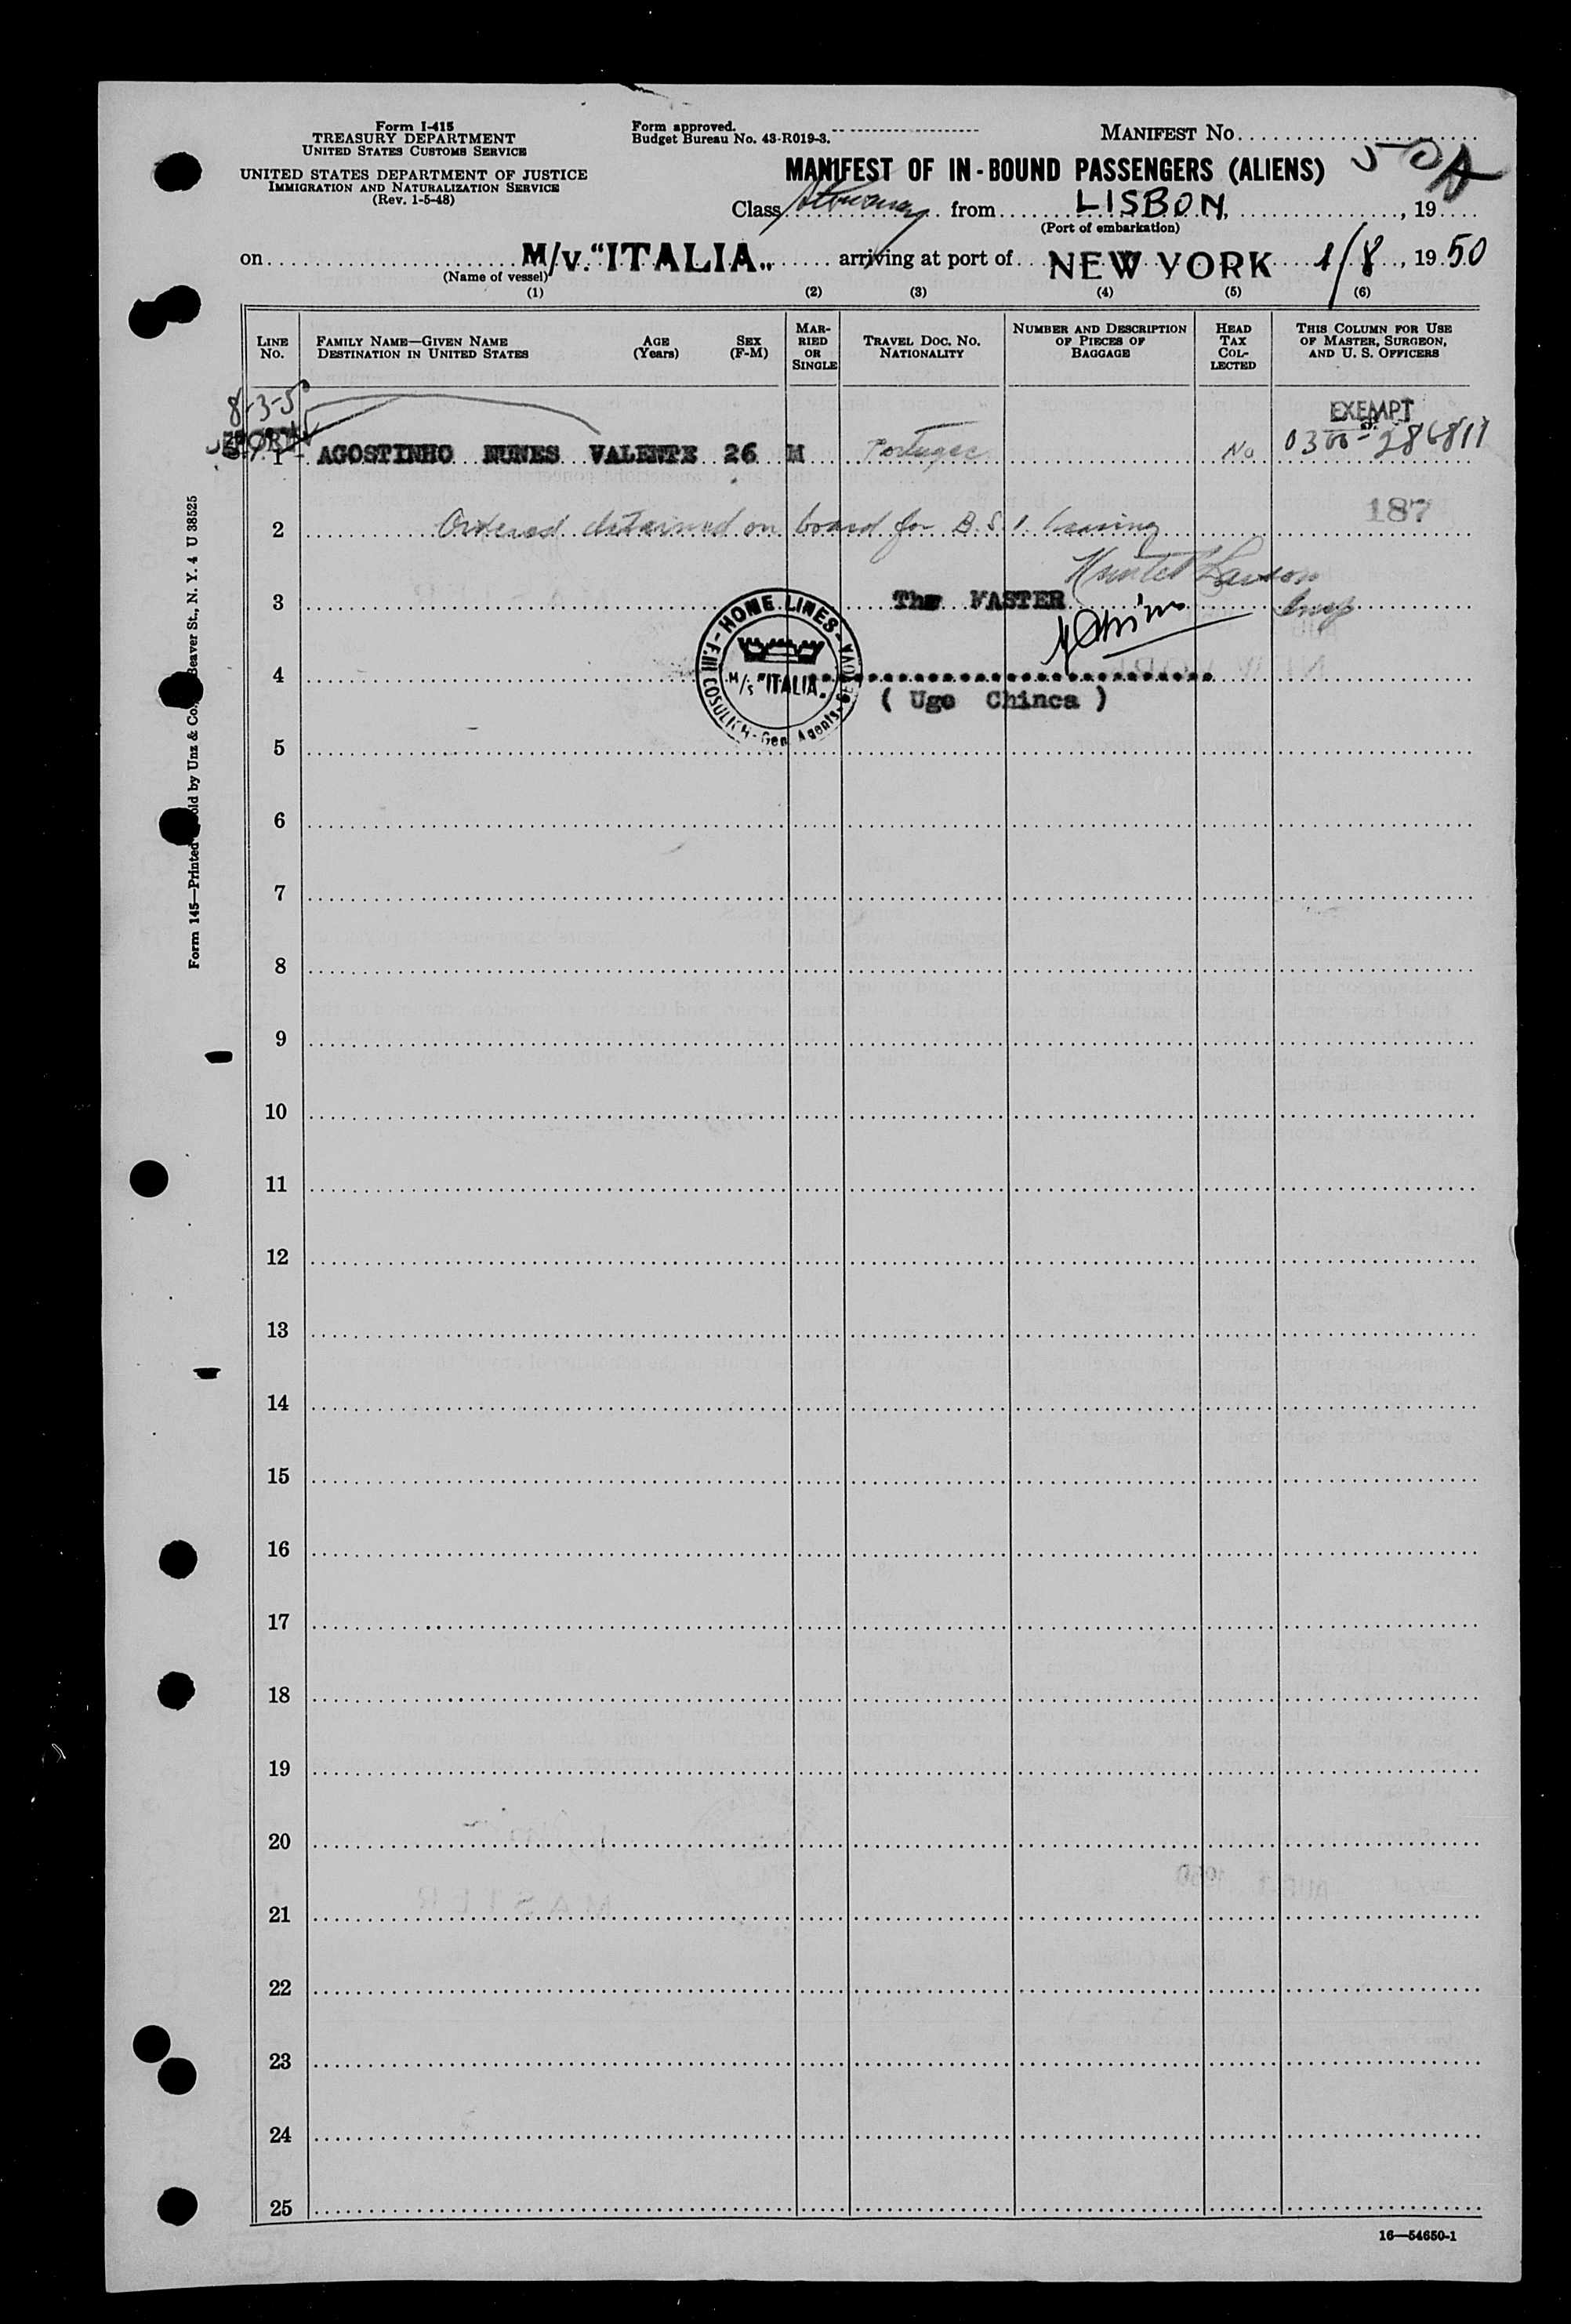 Form I-415
TREASURY DEPARTMENT
UNITED STATES CUSTOMS SERVICE
UNITED STATES DEPARTMENT OF JUSTICE
IMMIGRATION AND NATURALIZATION SERVICE
(Rev. 1-5-48)
Form approved.
Budget Bureau No. 43-R019-3.
MANIFEST No.
50A
MANIFEST OF IN-BOUND PASSENGERS (ALIENS)
Class from LISBON, , 19
(Port of embarkation)
on M/v. "ITALIA„ arriving at port of NEW YORK 1/8, 1950
(Name of vessel)
(1) (2) (3) (4) (5) (6)
LINE No.
FAMILY NAME—GIVEN NAME
DESTINATION IN UNITED STATES
AGE (Years)
SEX (F-M)
MARRIED OR SINGLE
TRAVEL DOC. NO.
NATIONALITY
NUMBER AND DESCRIPTION OF PIECES OF BAGGAGE
HEAD TAX COLLECTED
THIS COLUMN FOR USE OF MASTER, SURGEON, AND U. S. OFFICERS
8-3-50
EXEMPT
1 AGOSTINHO NUNES VALENTE 26 M No 0300-286811
187
2 Ordered detained on board for B.S.I. hearing
3 The MASTER
HOME LINES
M/s "ITALIA„
F.lli COSULICH - Gen. Agents - GENOVA
4
( Ugo Chinca )
5
6
7
8
9
10
11
12
13
14
15
16
17
18
19
20
21
22
23
24
25
Form 145—Printed old by Unz & Co. Beaver St., N. Y. 4 U 38525
16—54650-1